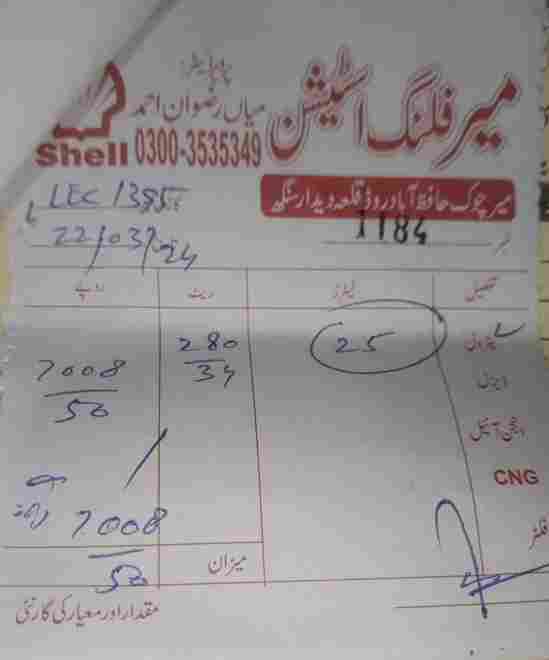 میر فلنگ اسٹیشن
پروپرائیٹرز
میاں رضوان احمد
Shell 0300-3535349
میر چوک حافظ آباد روڈ قلعہ دیدار سنگھ
LEC 1385
1184
22/03/24
تفصیل لیٹرز ریٹ روپے
پٹرول 25 280/34 7008/50
ڈیزل
انجن آئیل
CNG
فلٹر
میزان 7008/50
مقدار اور معیار کی گارنٹی